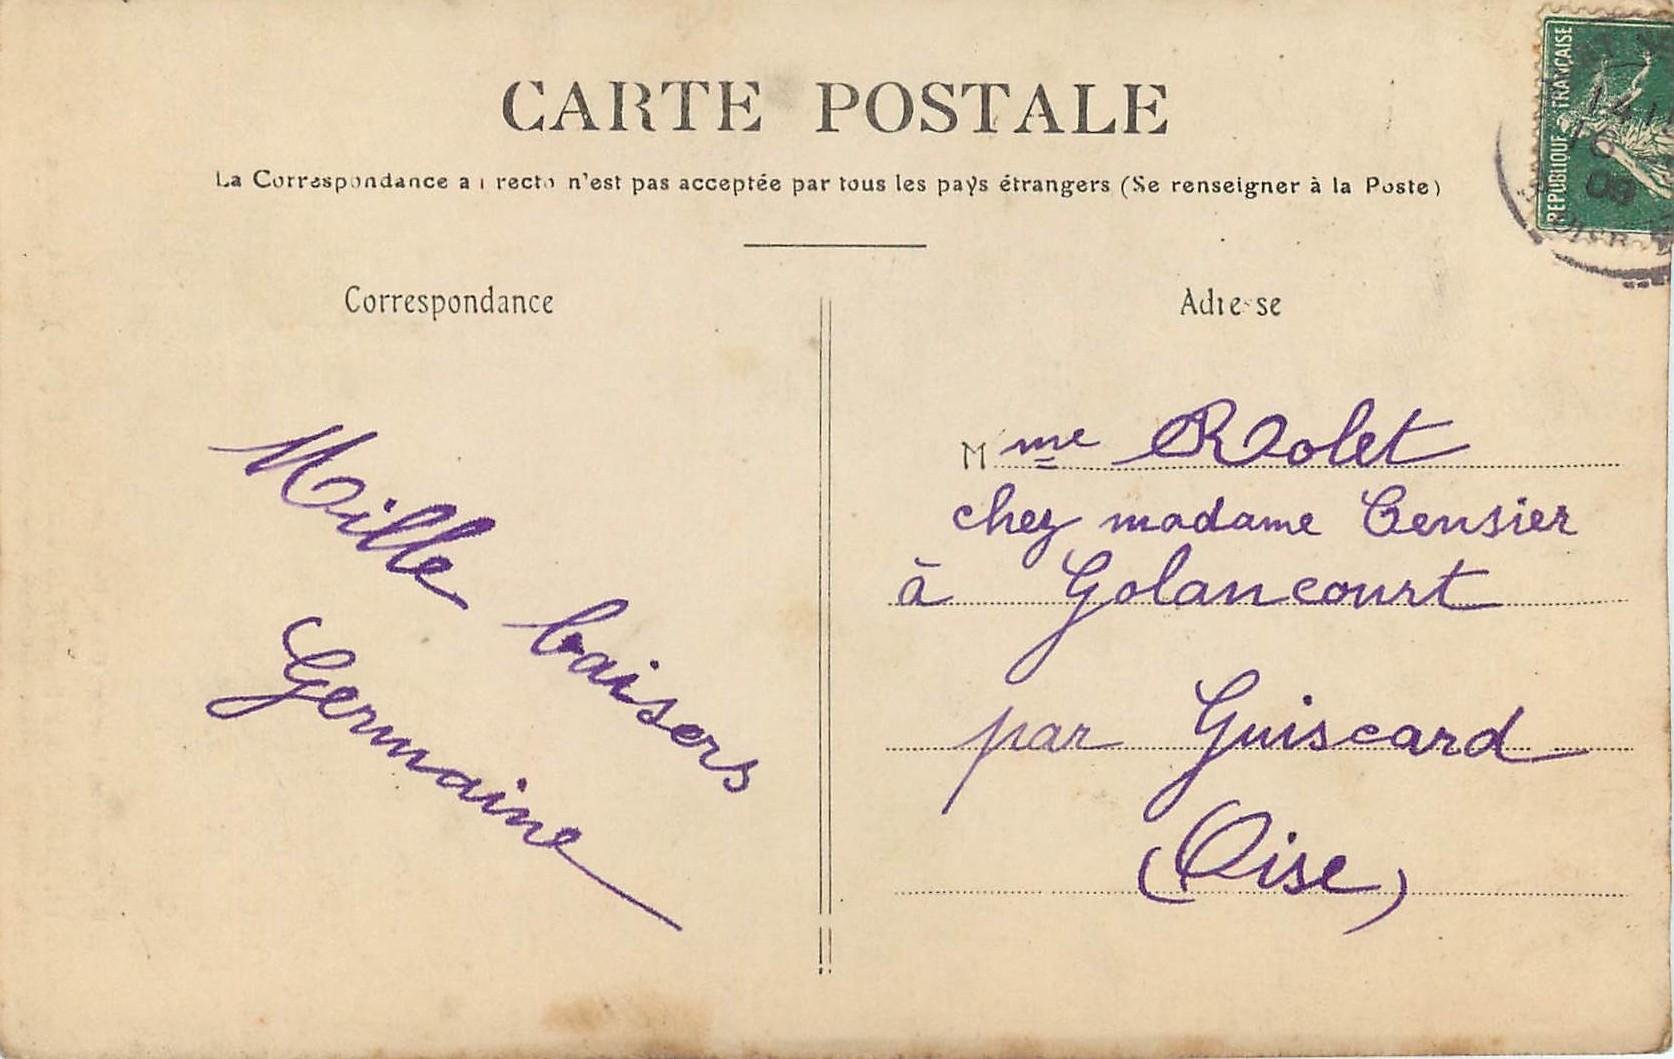 CARTE POSTALE
La Correspondance au recto n'est pas acceptée par tous les pays étrangers (Se renseigner à la Poste)
Correspondance
Mille baisers
Germaine
Adresse
Mme Rolet
chez madame Censier
à Golancourt
par Guiscard
(Oise)
REPUBLIQUE FRANÇAISE
16
08